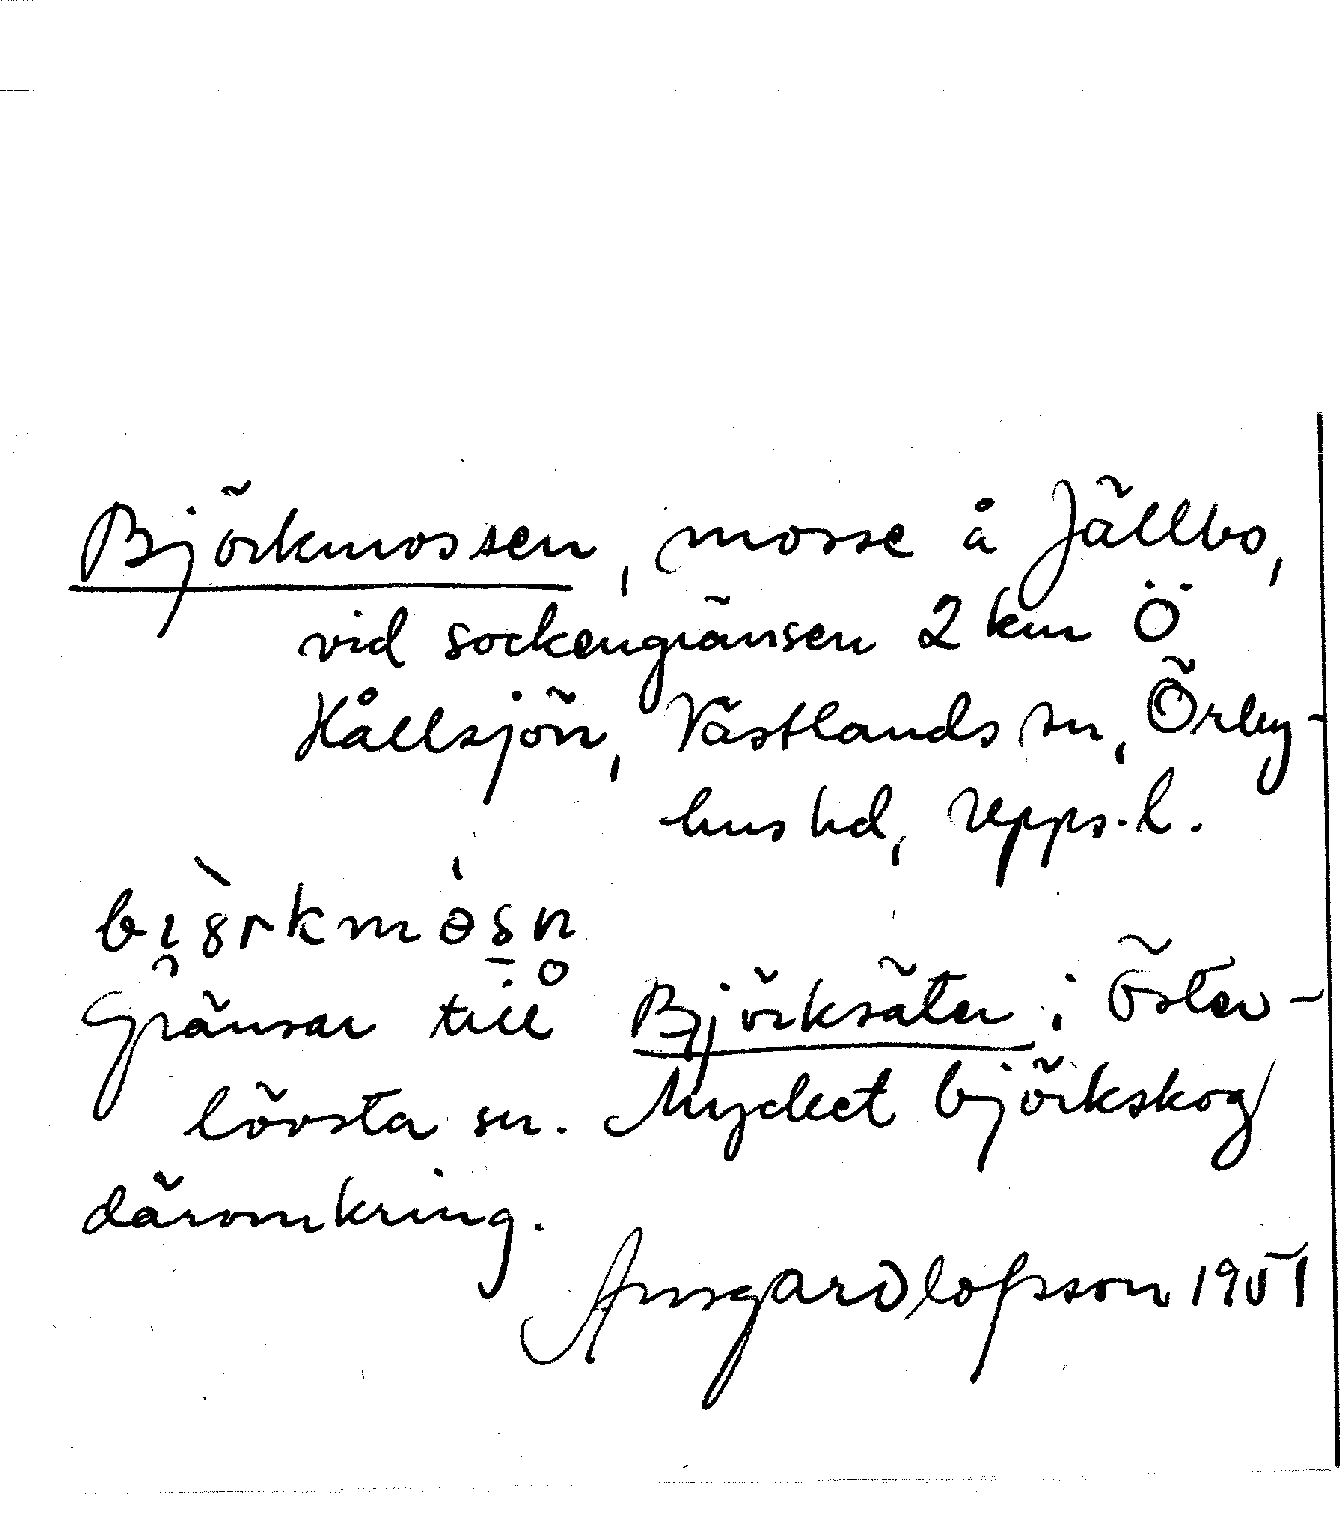 Björkmossen, mosse å Jällbo,
vid sockengränsen 2 km Ö
Hållsjön, Västlands sn, Örby-
hus hd, Upps. l.
Gränsar till Björksäter i Öster-
lövsta sn. Mycket björkskog
däromkring.
Ansgar Olofsson 1951